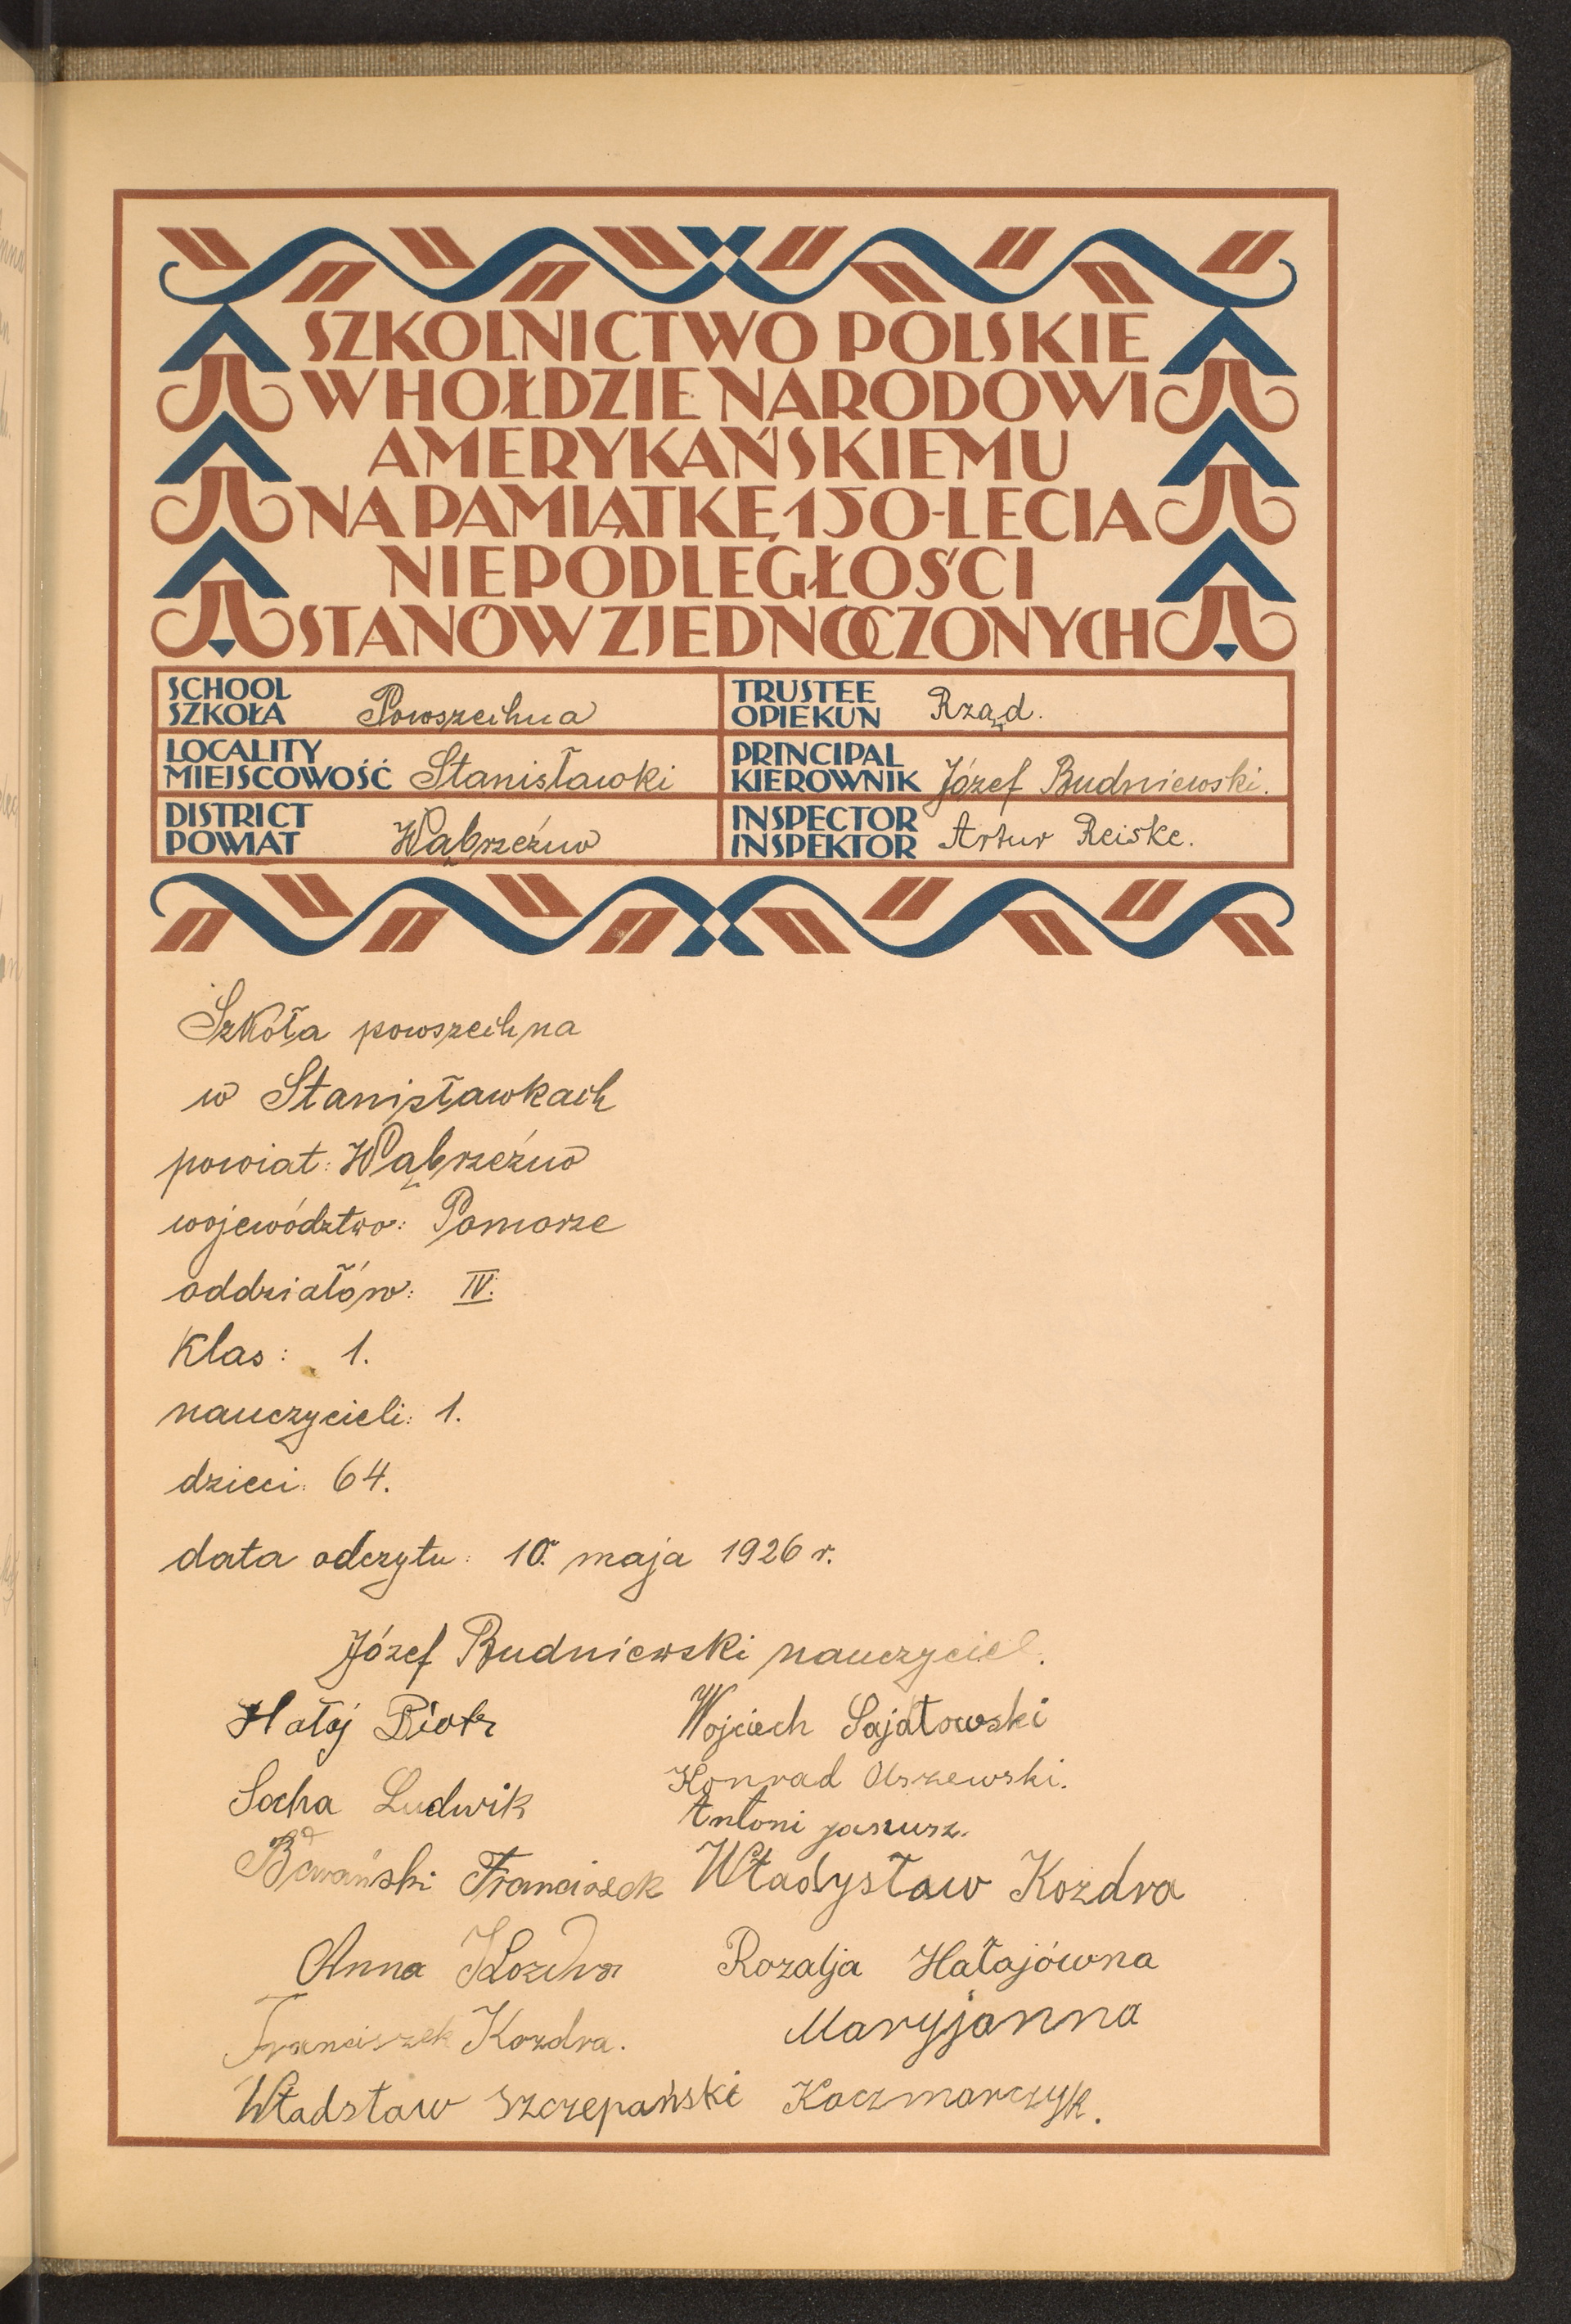 SZKOLNICTWO POLSKIE
W HOŁDZIE NARODOWI
AMERYKAŃSKIEMU
NA PAMIĄTKĘ 150-LECIA
NIEPODLEGŁOŚCI
STANÓW ZJEDNOCZONYCH
SCHOOL
SZKOŁA Powszechna
TRUSTEE
OPIEKUN Rząd.
LOCALITY
MIEJSCOWOŚĆ Stanisławki
PRINCIPAL
KIEROWNIK Józef Budniewski.
DISTRICT
POWIAT Wąbrzeźno
INSPECTOR
INSPEKTOR Artur Reiske.
Szkoła powszechna
w Stanisławkach
powiat: Wąbrzeźno
województwo: Pomorze
oddziałów: IV.
Klas: 1.
nauczycieli: 1.
dzieci: 64.
data odczytu: 10. maja 1926 r.
Józef Budniewski nauczyciel.
Hałaj Piotr
Wojciech Sajdłowski
Socha Ludwik
Konrad Olszewski.
Antoni Janusz.
Franciszek
Władysław Kozdra
Anna Kozdra
Rozalja Hałajówna
Franciszek Kozdra.
Maryjanna
Władsław Szczepański
Kaczmarczyk.